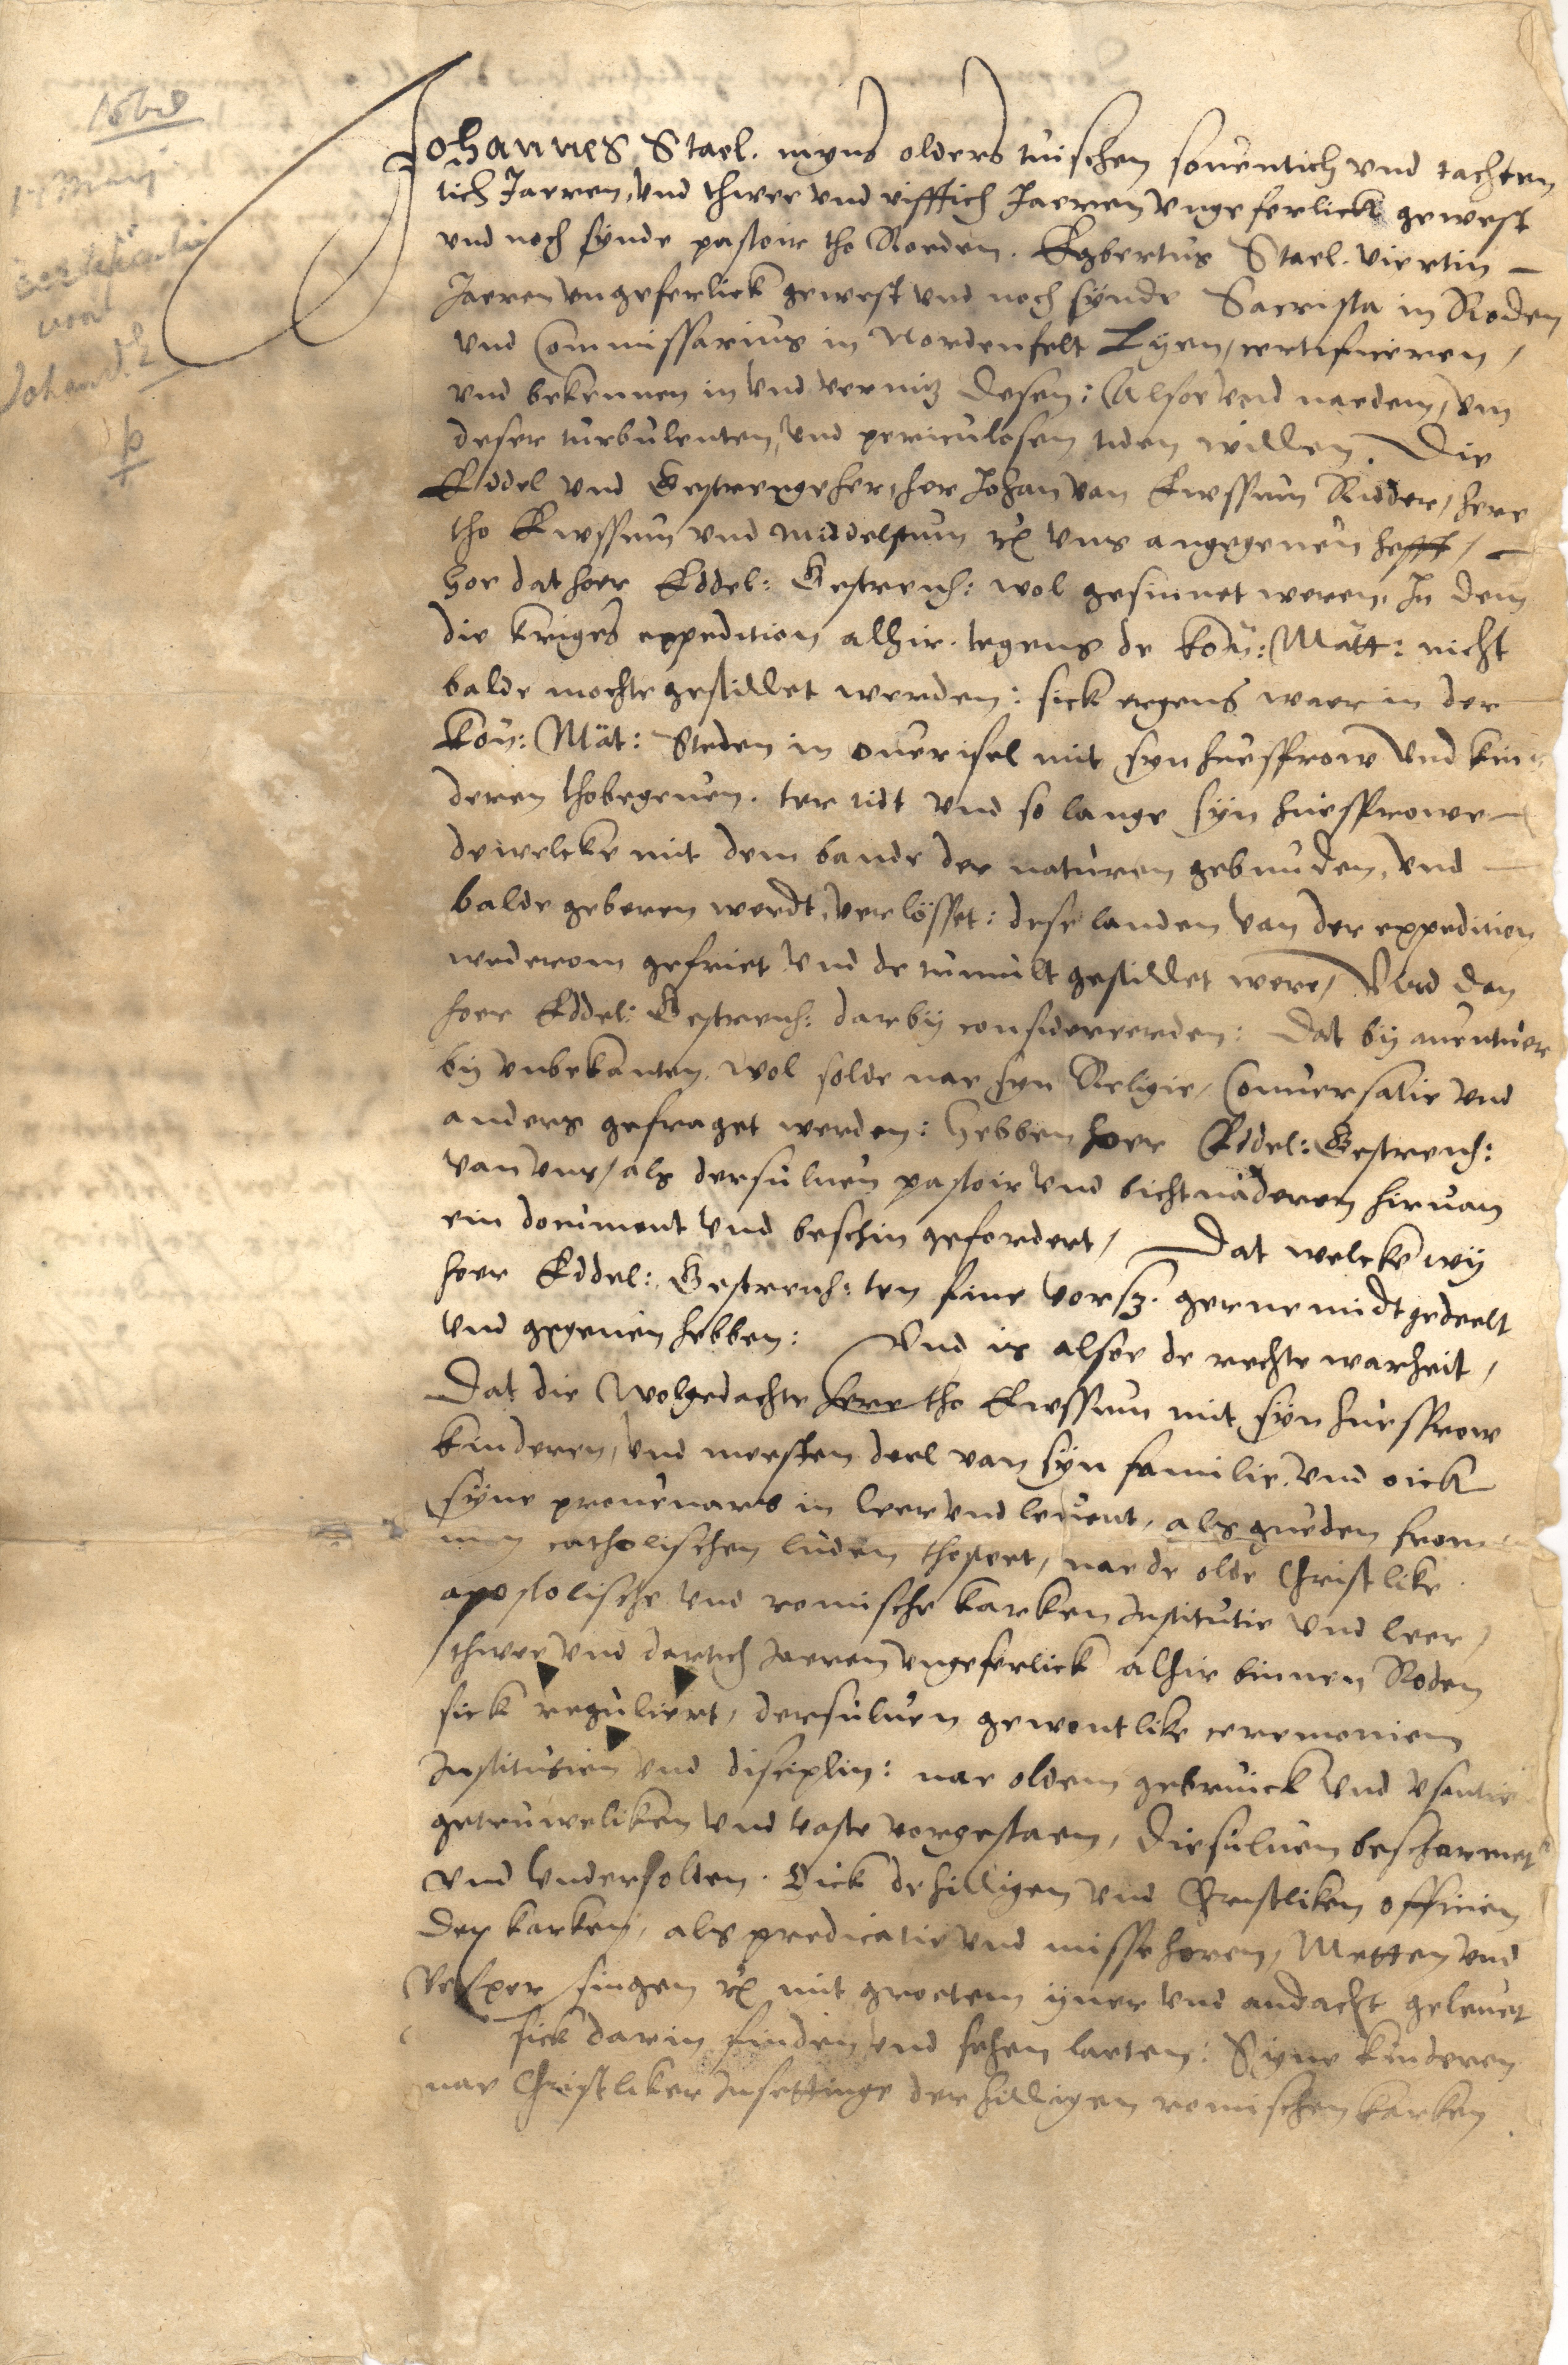 1568
1 Maij
certificatie
van
Johan d. E
Johannes Stael. myns olders tuischen souentich vnd tachten
tich Jaeren, vnd thwee vnd vifftich Jaeren vngeferlick gewest
vnd noch synde pastoir tho Roeden. Egbertus Stael. viertin
Jaeren vngeferlick gewest vnd noch synde Sacrista in Roden
vnd Commissarius in Nordenfelt Lyen, certificeren,
vnd bekennen in vnd vermitz desen: Alsoe vnd naedem, vm
deser turbulenten, vnd periculosen tiden willen. Die
Eddel vnd Gestrenge her, her Johan van Ewssum Ridder, here
tho Ewssum vnd Middelstum etc vns angegeuen hefft,
hoe dat hoer Eddel: Gestrench: wol gesinnet weren, In dem
die kriges expedition alhir. tegens de kon: Matt: nicht
balde mochte gestillet werden: sick ergens waer in der
kon: Mat: Steden in ouerisel mit syn huesfrow vnd kin
deren thobegeuen. ter tidt vnd so lange syn huesfrowe
dewelcke mit dem bande der naturen gebunden, vnd
balde geberen werdt, verlösset: dese landen van der expedition
wederom gefriet vnd de tumult gestillet were, Vnd den
hoer Eddel: Gestrench: darby considereerden: Dat by auentuer
by vnbekanten. wol solde nae syn Religie, Conuersatie vnd
anders gefraget werden: hebben hoer Eddel: Gestrench:
van vns, als dersuluen pastoir vnd bichtuaderen hiruan
ein document vnd beschin gefordert, Dat welcke wy
hoer Eddel: Gestrench: ten fine vorsz. gerne midtgedeelt
vnd gegeuen hebben: Vnd is alsoe de rechte warheit,
Dat die Wolgedachte here tho Ewssum mit syn huesfrow
kinderen, vnd mersten deel van syn familie, vnd oick
syne prouenars in leer vnd leuent, als gueden from
men catholischen luden thostet, nae de olde Christlike
apostolische vnd romische karken Institutie vnd leer,
thwee vnd dertich Jaeren vngeferlick alhir binnen Roden
sick reguliert, dersuluen gewontlike ceremonien
Institutien vnd disciplin: nae olden gebruick vnd vsantie
getruweliken vnd vaste vorgestaen, diesuluen beschermet
vnd vnderholden. Oick de hilligen vnd Christliken officien
der karken, als predicatie vnd misse horen, Metten vnd
Vesper singen etc mit groetem yuer vnd andacht geleuet
sick darin finden vnd sehen laeten: Syne kinderen
nae Christliker Insettinge der hilligen romischen karken